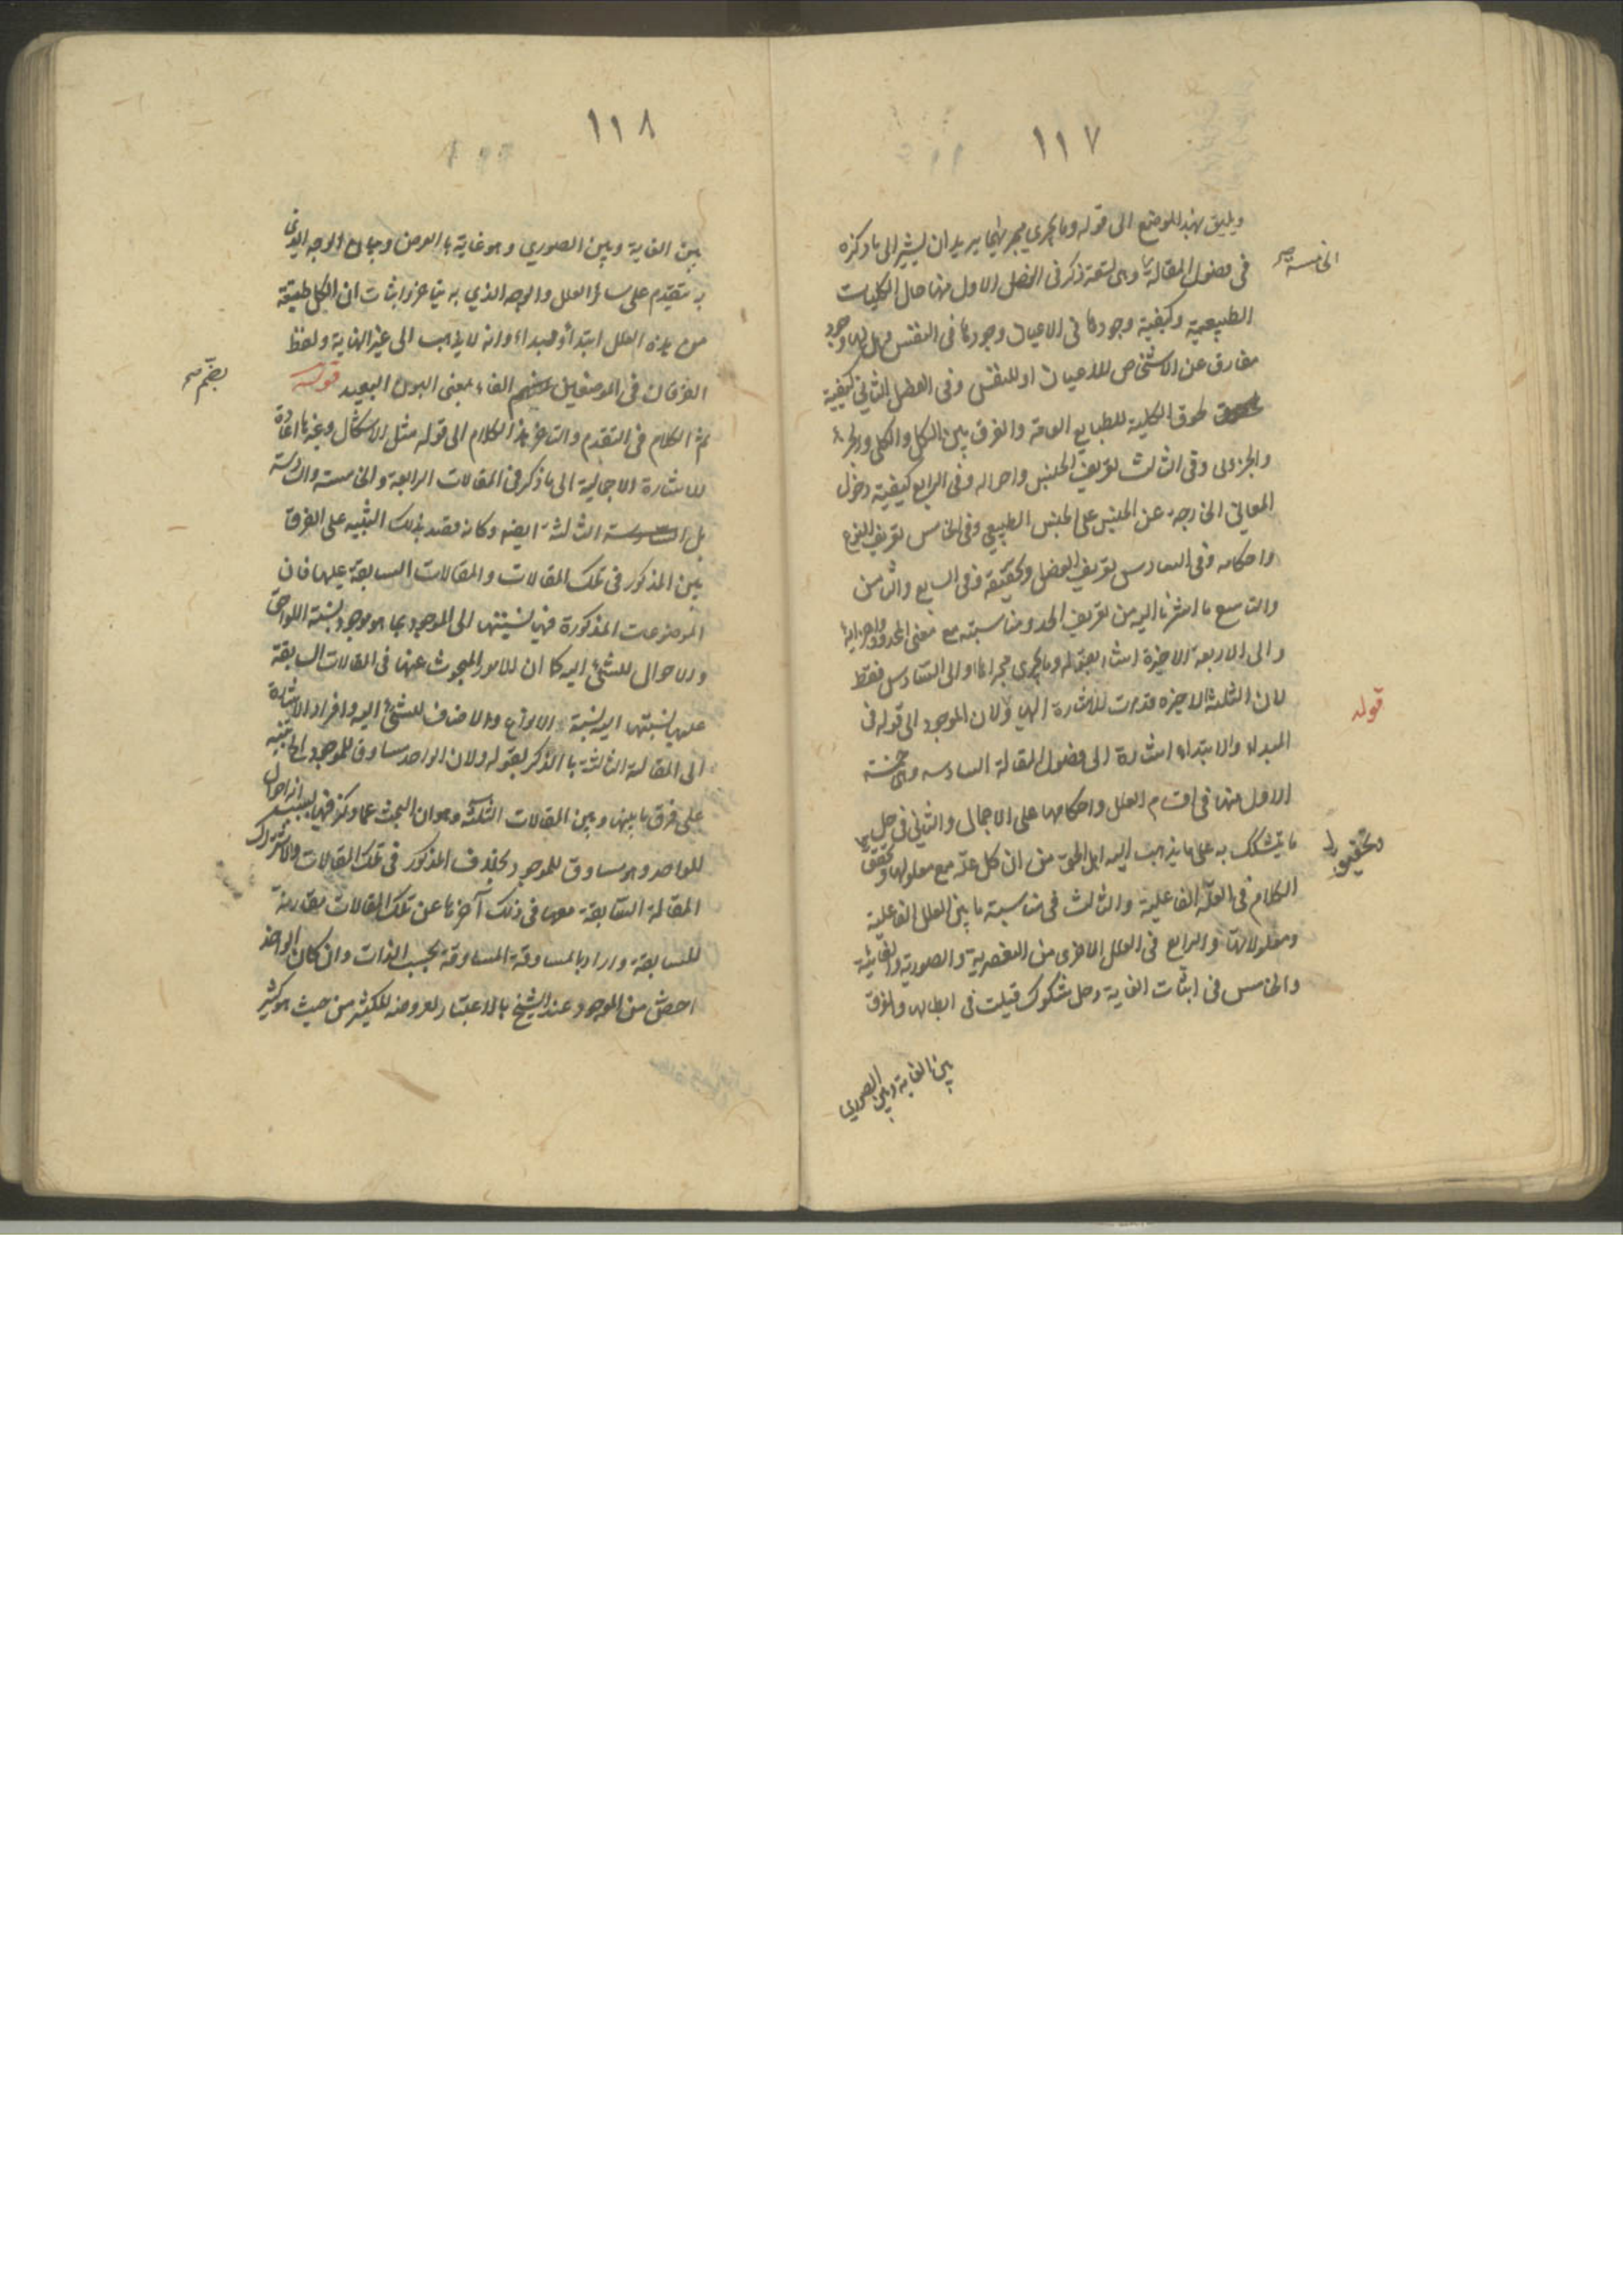 ١١٧
ويليق بهذا الموضع الى قوله وما يجري مجريهما يريد ان يشير الى ما ذكره
الخامسة صح
فى فصول المقالة وهى تسعة ذكر فى الفصل الاول منها حال الكليات
الطبيعية وكيفية وجودها فى الاعيان وجودها فى النفس وهل لها وجود
مفارق عن الاشخاص للاعيان او للنفس وفى الفصل الثانى كيفية
لحوق الكلية للطبايع العامة والفرق بين الكل والكلي والجزء
والجزوى وفى الثالث تعريف الجنس واحواله وفى الرابع كيفية دخول
المعانى الخارجة عن الجنس على الجنس الطبيعي وفى الخامس تعريف النوع
واحكامه وفى السادس تعريف الفصل وتحقيقه وفى السابع والثامن
والتاسع ما اشرنا اليه من تعريف الحد ومناسبته مع معنى المحدود واجزائه
والى الاربعة الاخيرة اشار بقوله وما يجرى مجراها والى السادس فقط
لان الثلثة الاخيرة قد مرت للاشارة اليها ولان الموجود الى قوله فى
قوله
المبداء والابتداء اشارة الى فصول المقالة السادسه وهى خمسة
الاول منها فى اقسام العلل واحكامها على الاجمال والثانى فى حل
ما يتشكك به على ما يذهب اليه اهل الحق من ان كل علة مع معلولها وتحقق
الكلام فى العلة الفاعلية والثالث فى مناسبة ما بين العلل الفاعلية
ومعلولاتها والرابع فى العلل الاخرى من العنصرية والصورية والغائية
والخامس فى اثبات الغاية وحل شكوك قيلت فى ابطالها والفرق
بين الغاية وبين الصورى
١١٨
بين الغاية وبين الصوري وهو غاية بالعرض وبيان الوجه الذى
به يتقدم على سائر العلل والوجه الذي به يتاخر واثبات ان لكل طبيعة
من هذه العلل ابتداً ومبداء وانه لا يذهب الى غير النهاية ولفظ
الفرقان فى الموضعين الفاء بمعنى البون البعيد قوله
بضم صح
ثم الكلام فى التقدم والتاخر هذا الكلام الى قوله مثل الاشكال وغيرها اعادة
للاشارة الاجمالية الى ما ذكر فى المقالات الرابعة والخامسة والسادسة
بل الثالثة ايضا وكانه قصد بذلك التنبيه على الفرق
بين المذكور فى تلك المقالات والمقالات السابقة عليها فان
الموضوعات المذكورة فيها نسبتها الى الموجود بما هو موجود نسبة اللواحق
والاحوال للشئ اليه كما ان الامور المبحوث عنها فى المقالات السابقة
عليها نسبتها اليه نسبة الانواع والاصناف للشئ اليه وافراد الاشارة
الى المقالة الثالثة بالذكر بقوله ولان الواحد مساوق للموجود الخ تنبيه
على فرق ما بينها وبين المقالات الثلثة وهو ان البحث عما ذكر فيها بسبب انه احوال
للواحد وهو مساوق للموجود بخلاف المذكور فى تلك المقالات ولاشتراك
المقالة السابقة معها فى ذلك آخرها عن تلك المقالات مقارنة
للسابقة واراد بالمساوقة المساوقة بحسب الذات وان كان الواحد
اخص من الموجود عند الشيخ بالاعتبار لعروضه للكثير من حيث هو كثير